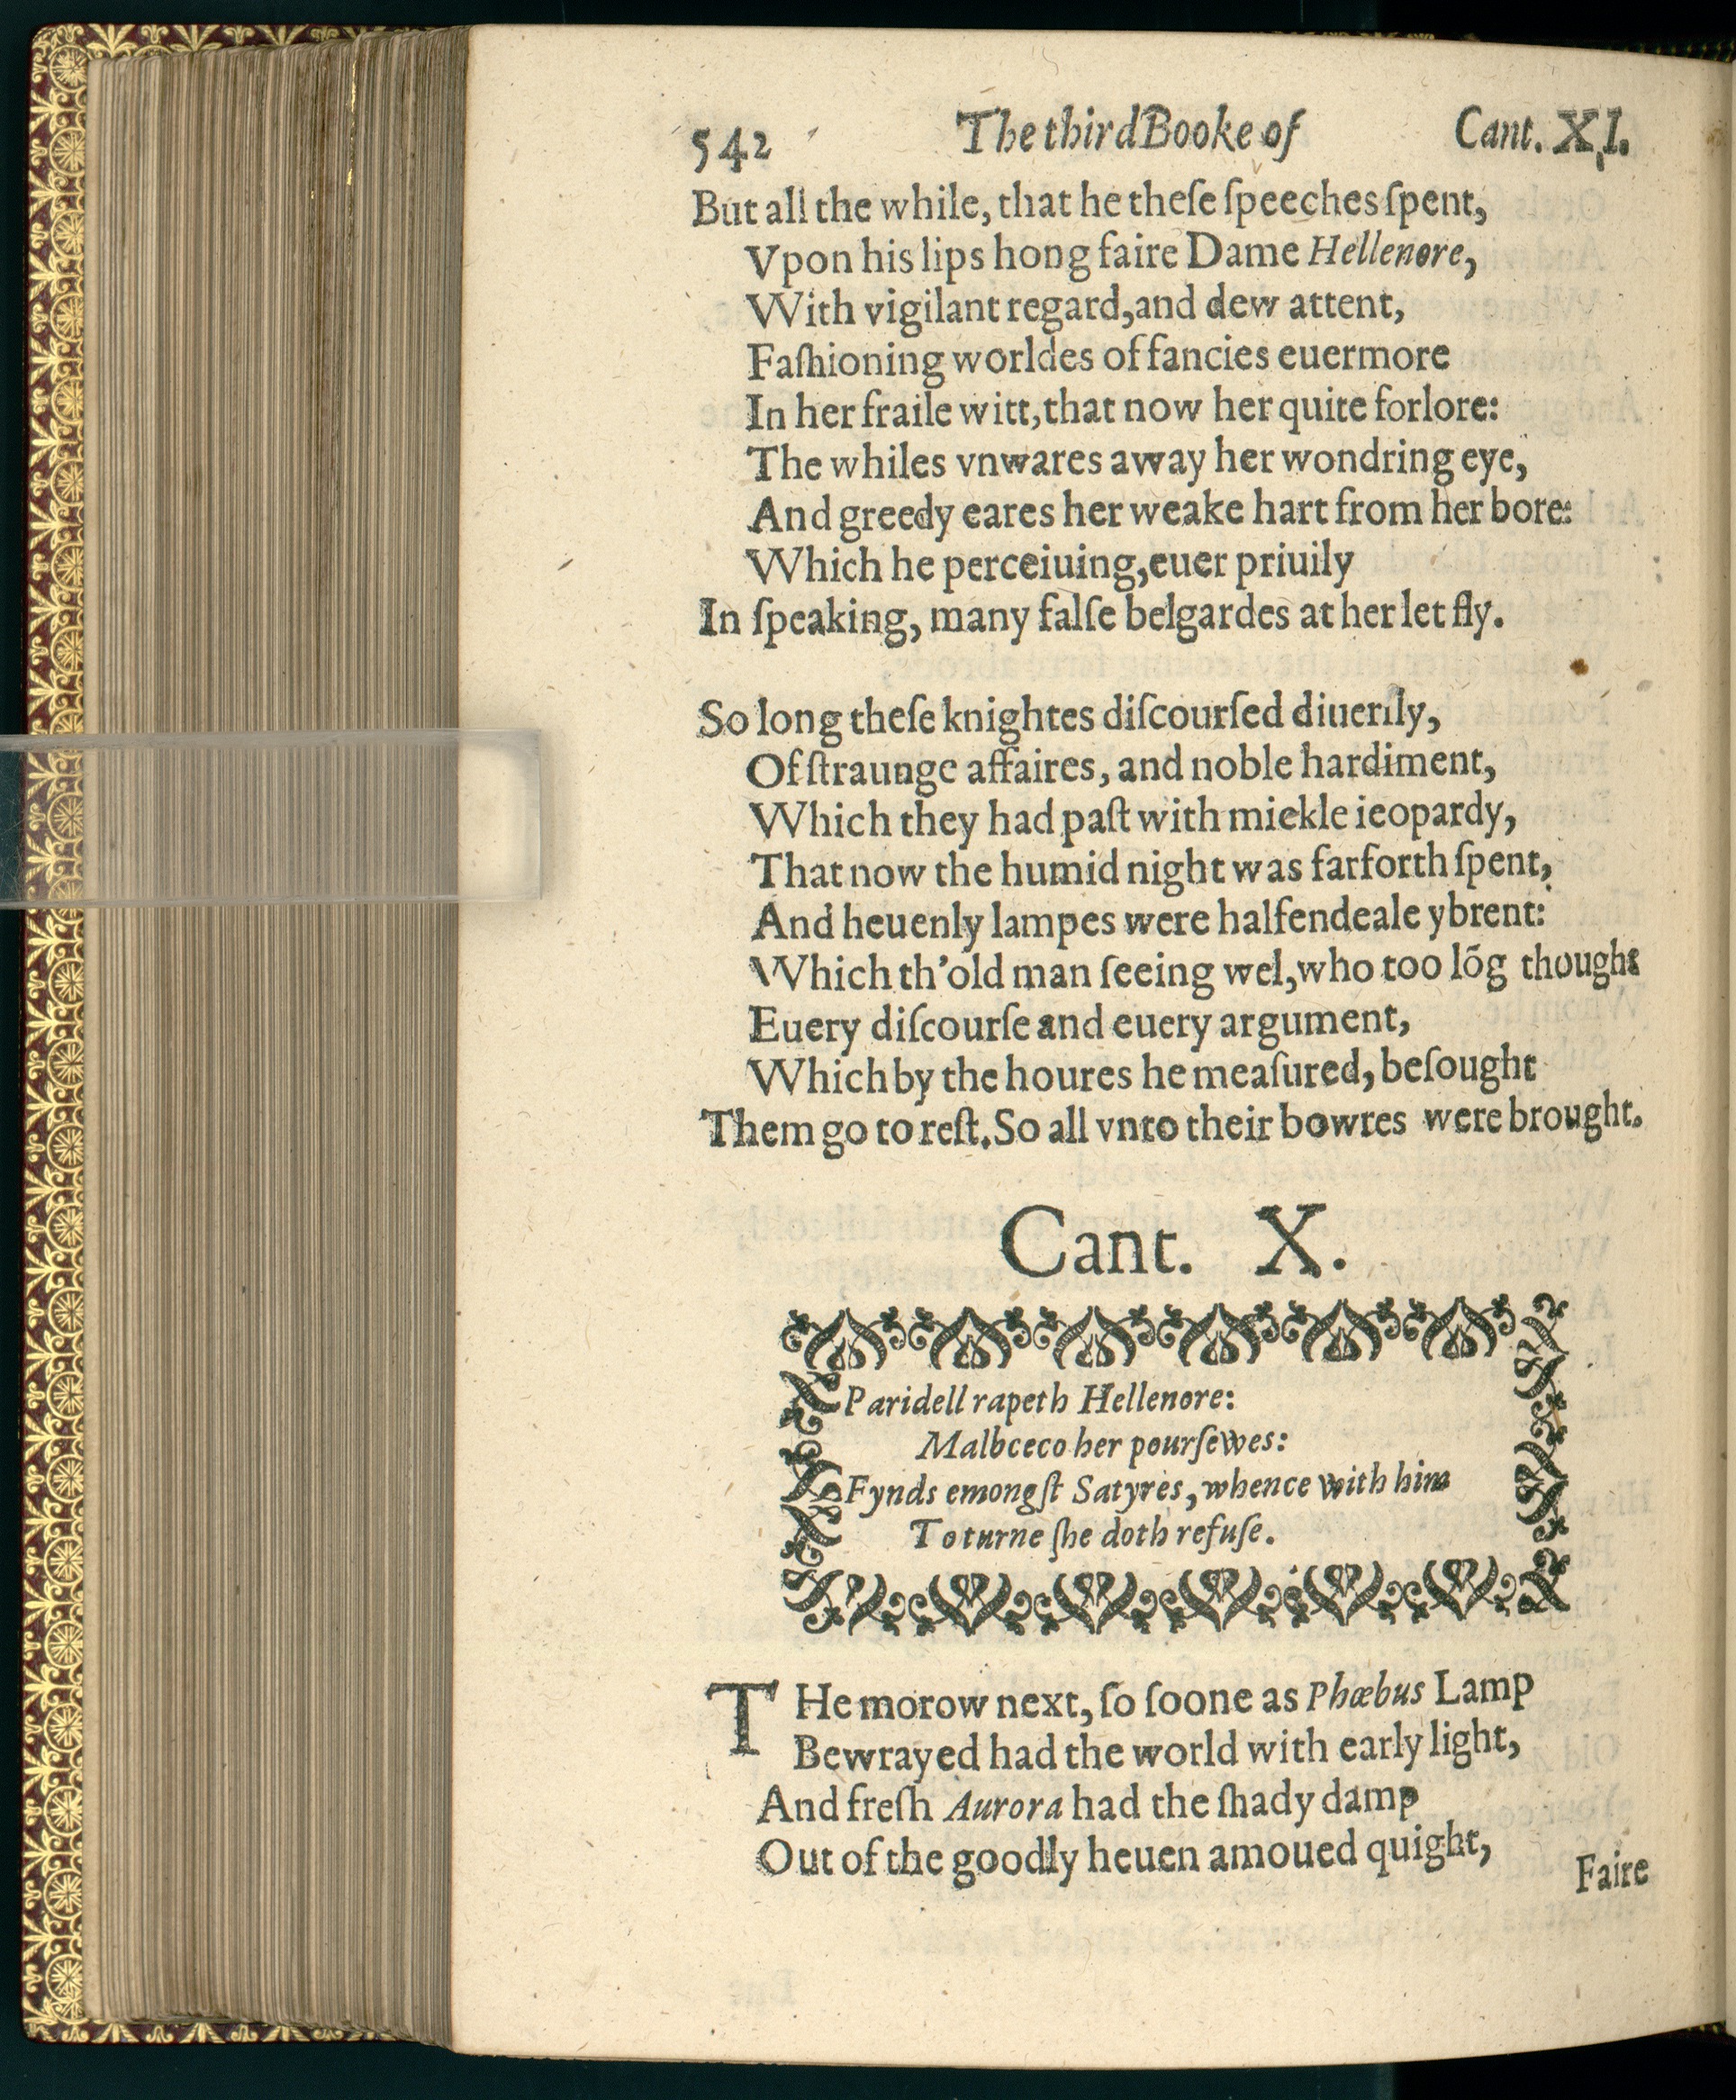 542 The third Booke of Cant. XI.
But all the while, that he theſe ſpeeches ſpent,
Vpon his lips hong faire Dame Hellenore,
With vigilant regard, and dew attent,
Faſhioning worldes of fancies euermore
In her fraile witt, that now her quite forlore:
The whiles vnwares away her wondring eye,
And greedy eares her weake hart from her bore:
Which he perceiuing, euer priuily
In ſpeaking, many falſe belgardes at her let fly.
So long theſe knightes diſcourſed diuerſly,
Of ſtraunge affaires, and noble hardiment,
Which they had paſt with mickle ieopardy,
That now the humid night was farforth ſpent,
And heuenly lampes were halfendeale ybrent:
Which th'old man ſeeing wel, who too lōg thought
Euery diſcourſe and euery argument,
Which by the houres he meaſured, beſought
Them go to reſt. So all vnto their bowres were brought.
Cant. X.
Paridell rapeth Hellenore:
Malbceco her pourſewes:
Fynds emongſt Satyres, whence with him
To turne ſhe doth refuſe.
THe morow next, ſo ſoone as Phœbus Lamp
Bewrayed had the world with early light,
And freſh Aurora had the ſhady damp
Out of the goodly heuen amoued quight,
Faire